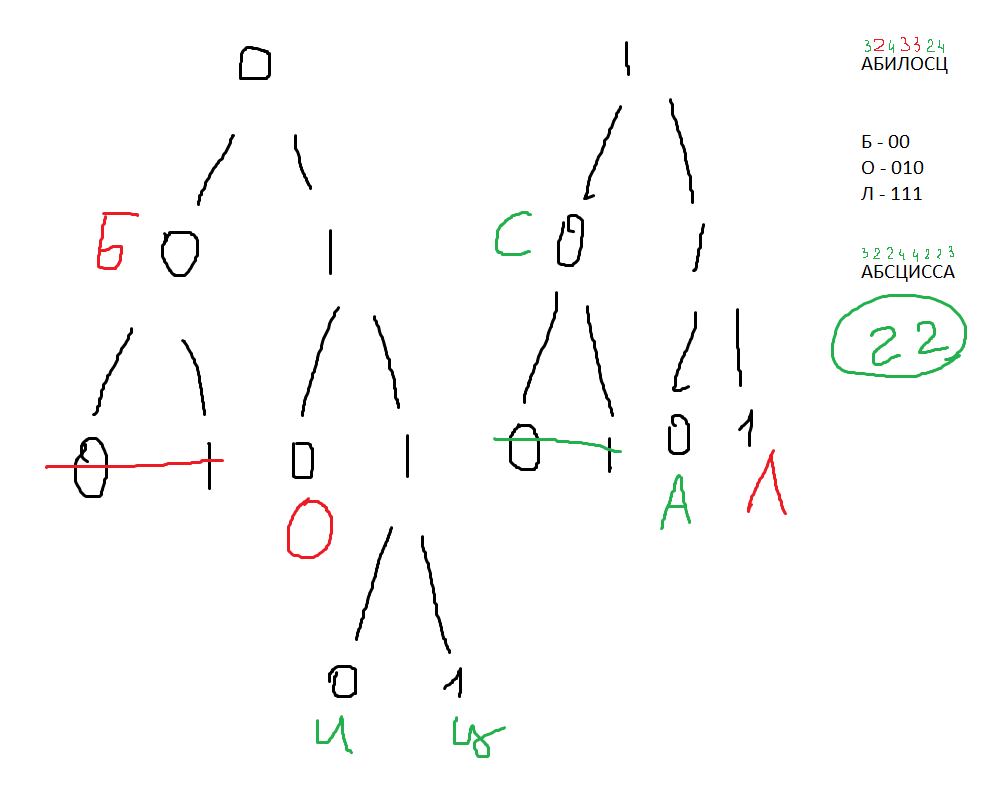 0 1
Б 0 1 С 0 1
0 1 0 1 0 1 0 1
О А Л
0 1
И Ц
3 2 4 3 3 2 4
АБИЛОСЦ
Б - 00
О - 010
Л - 111
3 2 2 4 4 2 2 3
АБСЦИССА
22